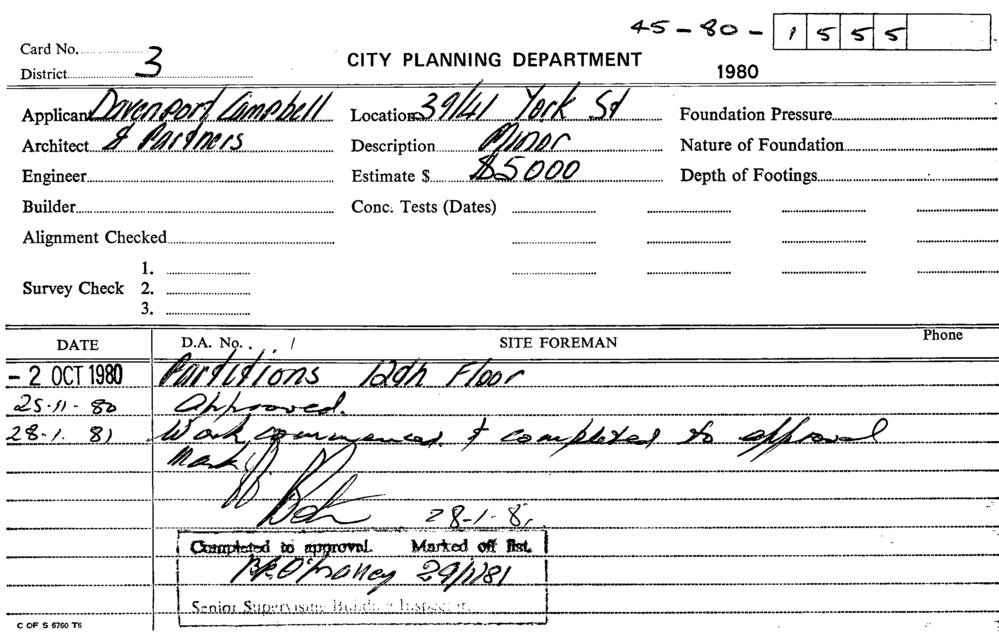 45-80-1555
Card No.
District 3
CITY PLANNING DEPARTMENT
1980
Applicant Davenport Campbell
Architect & Partners
Engineer
Builder
Alignment Checked
Survey Check
1.
2.
3.
Location 39/41 York St
Description Minor
Estimate $ $5000
Conc. Tests (Dates)
Foundation Pressure
Nature of Foundation
Depth of Footings
DATE D.A. No. / SITE FOREMAN Phone
- 2 OCT 1980 Partitions 12th Floor
25-11-80 Approved.
28-1-81 Work commenced & completed to approval
Mark
28-1-81
Completed to approval. Marked off list.
29/1/81
Senior Supervising Building Inspector.
C OF S 6760 T6